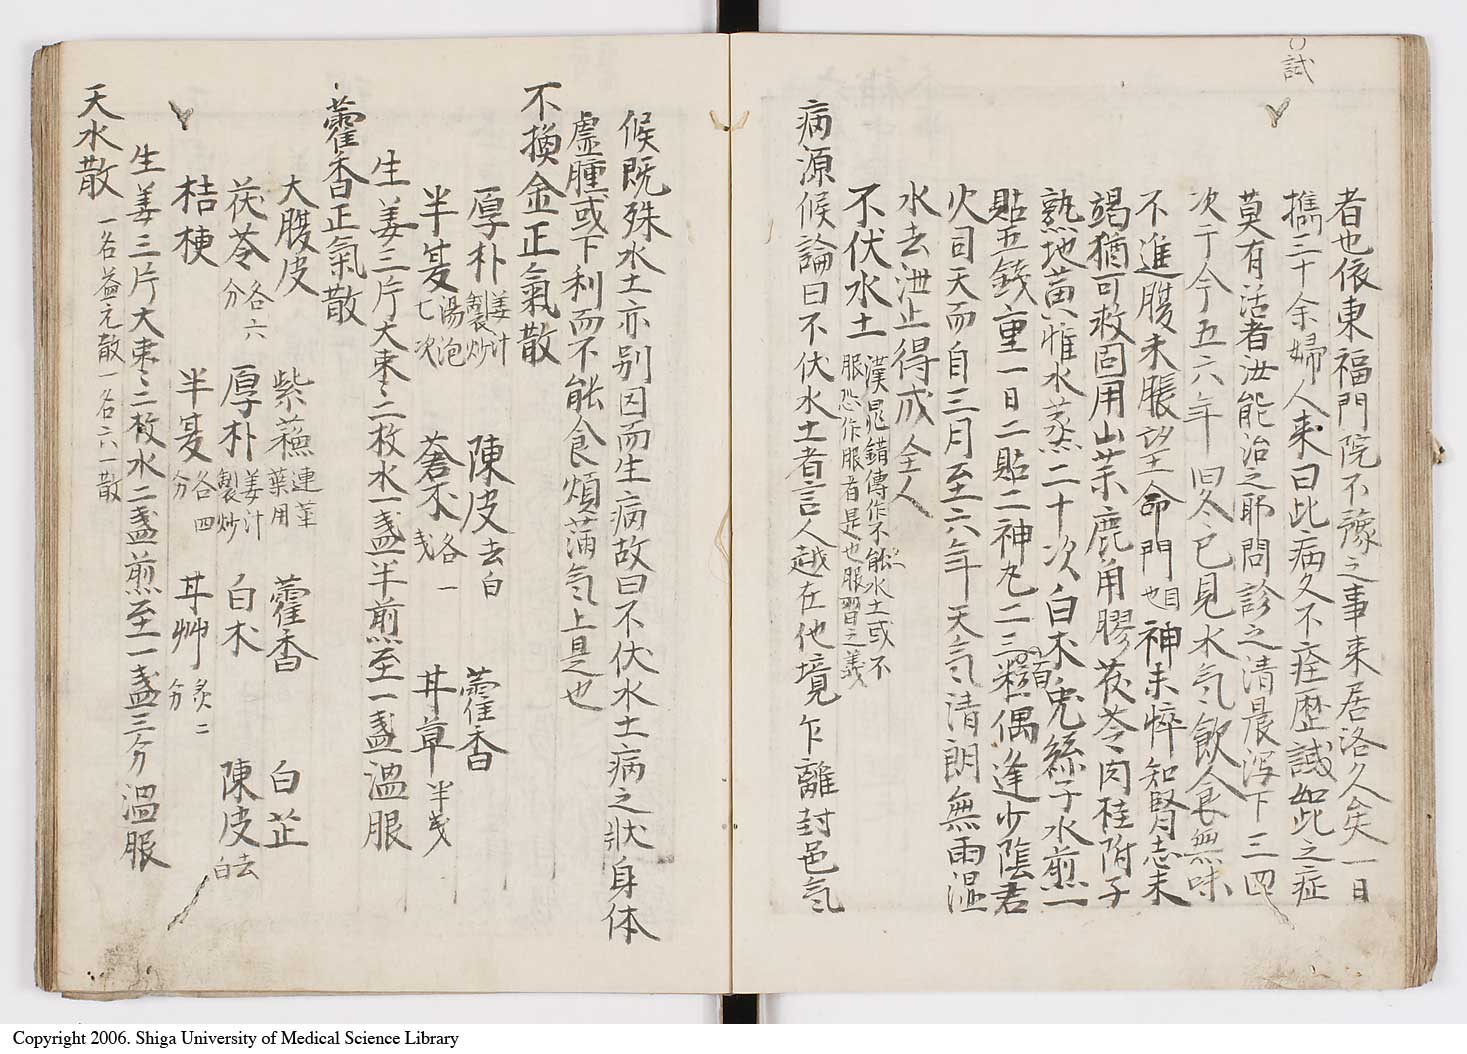 試
者也依東福門院不豫之事来居洛久矣一日
携三十余婦人来曰此病久不痊歴試如此之症
莫有活者汝能治之耶問診之清晨瀉下三四
次于今五六年旧冬已見水气飲食無味
不進腹未脹望命門也目神未悴知腎志未
竭猶可救固用山茱鹿角膠茯苓肉桂附子
熟地黄惟水蒸二十次白朮兎絲子水煎一
貼五錢重一日二貼二神丸二三百粒偶逢少陰君
火司天而自三月至六年天气清朗無雨湿
水去泄止得成全人
不伏水土 漢晁錯傳作不能水土或不
服恐作服者是也服習之義
病源候論曰不伏水土者言人越在他境乍離封邑气
候既殊水土亦别因而生病故曰不伏水土病之狀身体
虚腫或下利而不能食煩滿气上是也
不換金正氣散
厚朴 姜汁製炒 陳皮 去白 藿香
半夏 湯泡七次 蒼朮 各一戔 甘草 半戔
生姜三片大棗二枚水一盞半煎至一盞温服
藿香正氣散
大腹皮 紫蘓 連莖葉用 藿香 白芷
茯苓 各六分 厚朴 姜汁製炒 白朮 陳皮 去白
桔梗 半夏 各四分 甘艸 炙二分
生姜三片大棗二枚水二盞煎至一盞三分温服
天水散 一名益元散一名六一散